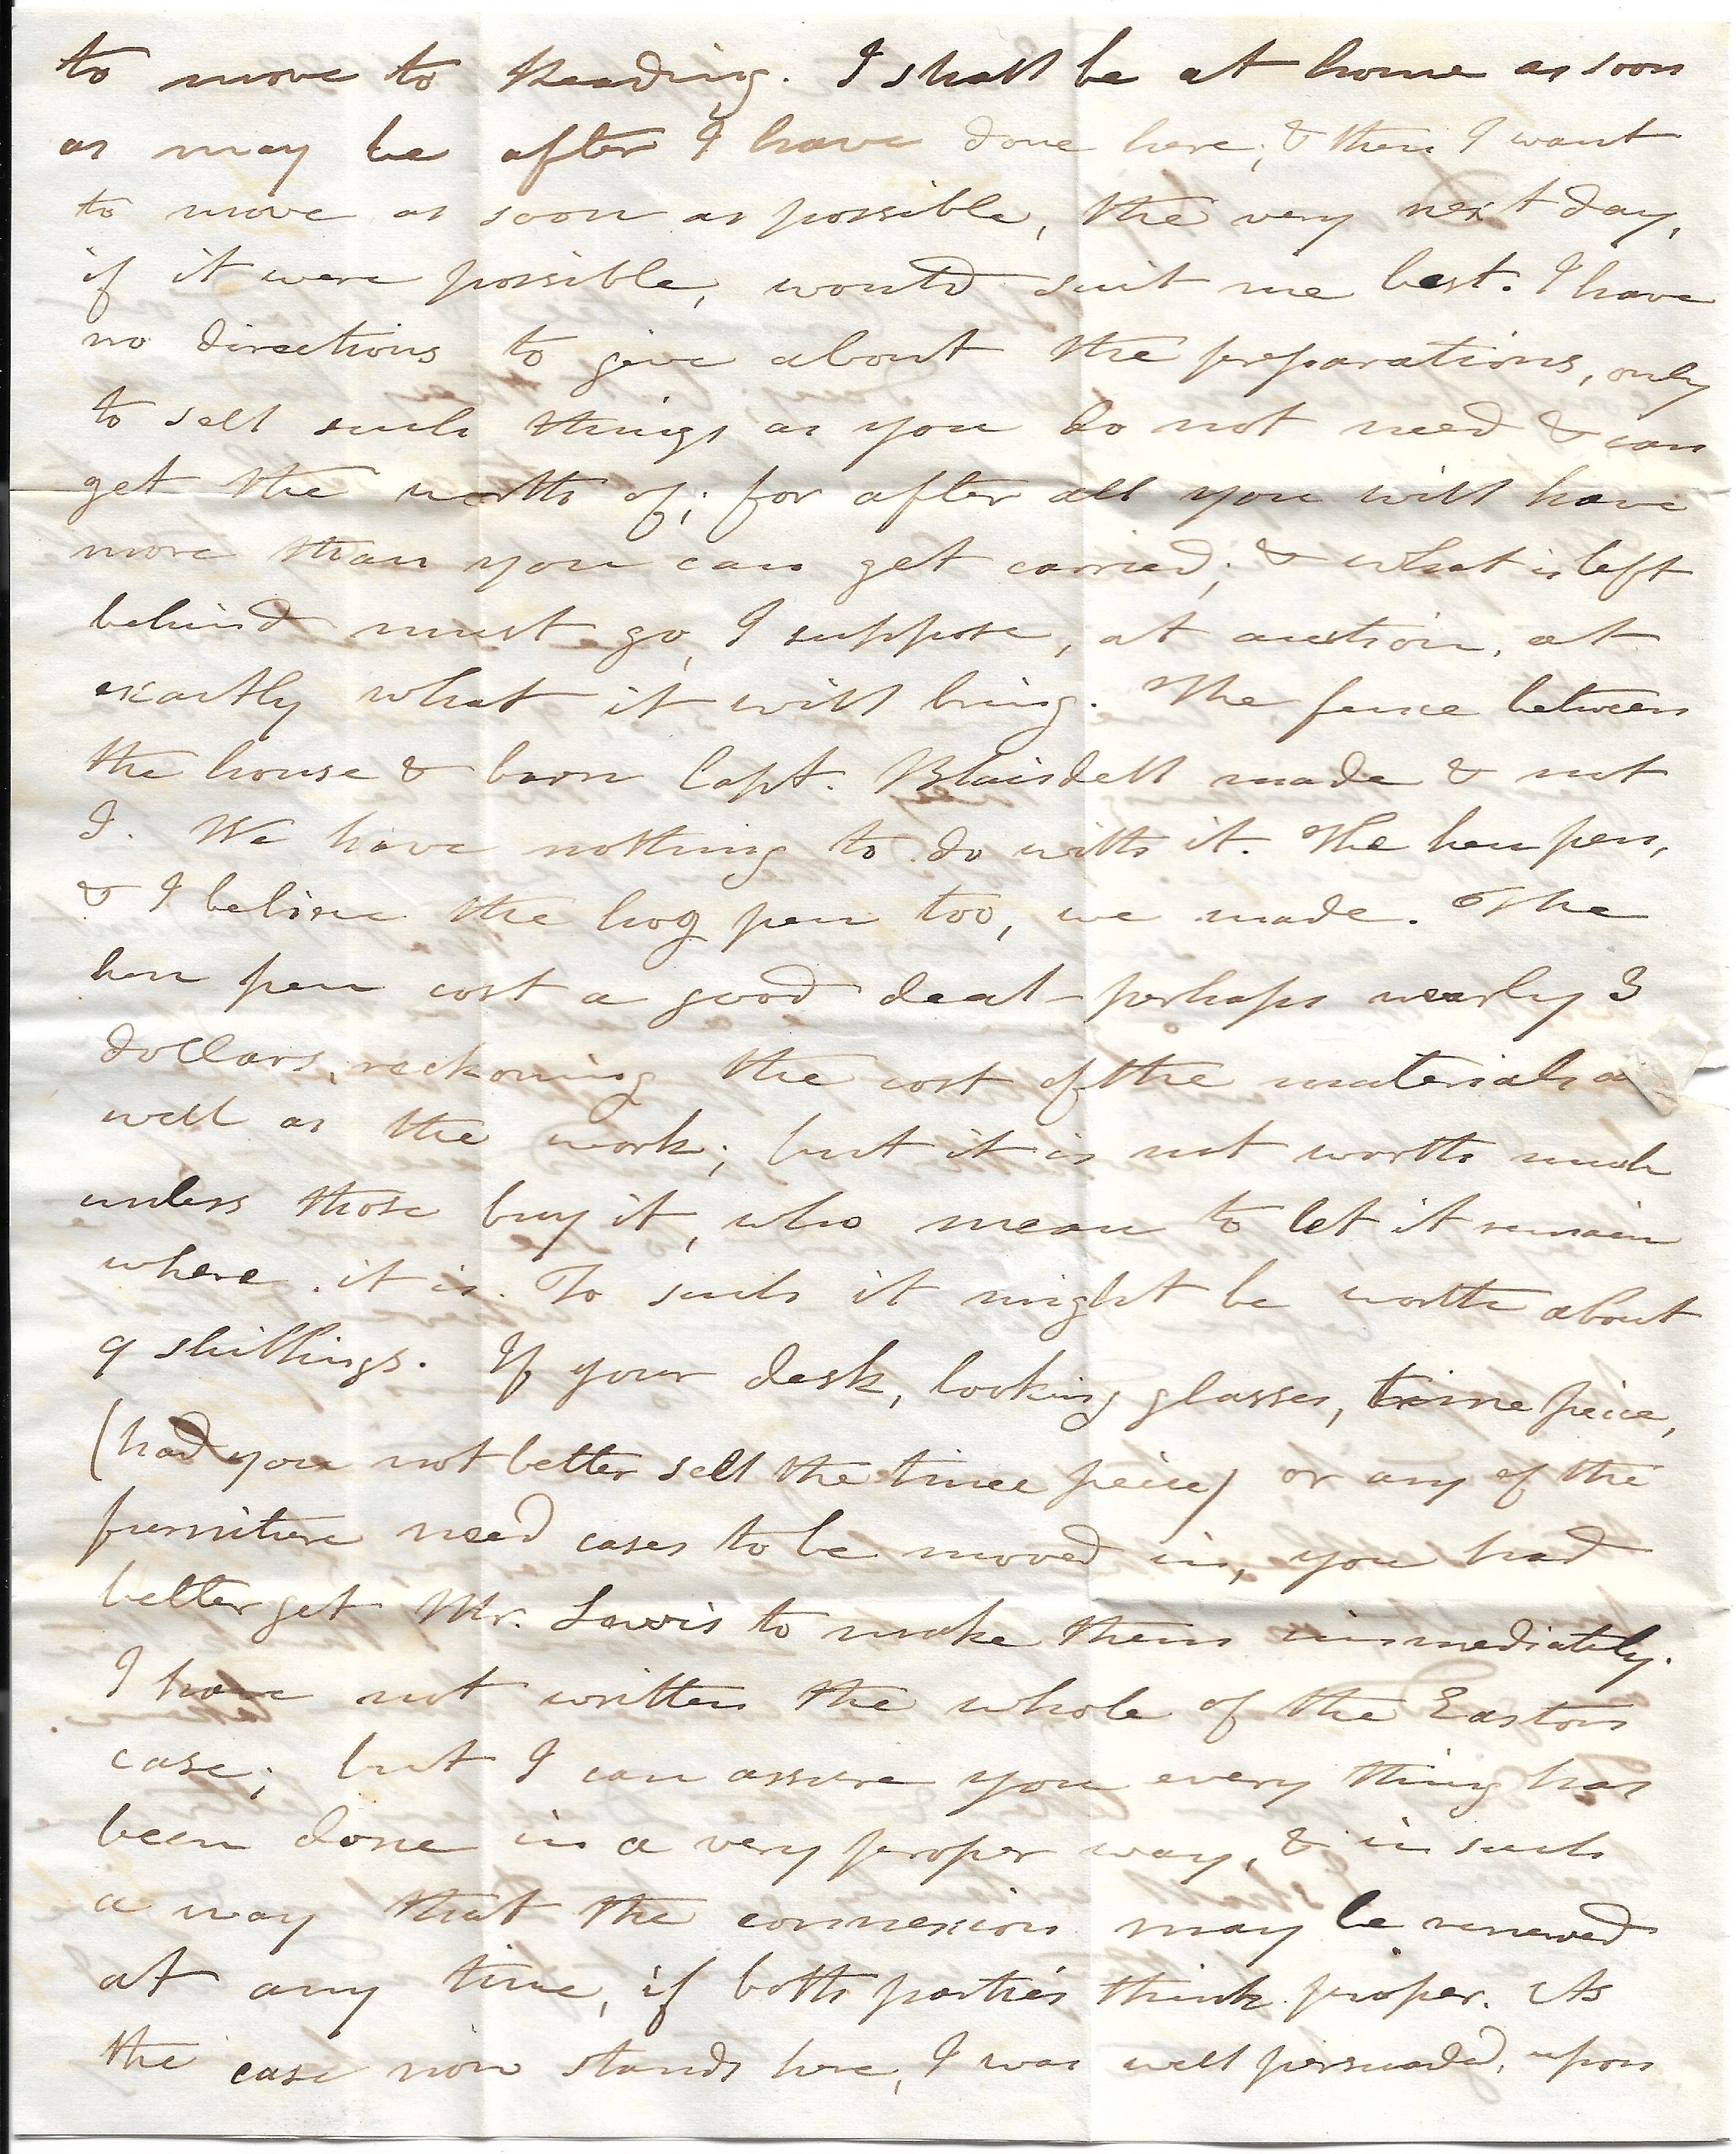 to move to Reading. I shall be at home as soon
as may be after I have done here; & then I want
to move as soon as possible, the very next day,
if it were possible, would suit me best. I have
no directions to give about the preparations, only
to sell such things as you do not need & can
get the worth of; for after all you will have
more than you can get carried; & what is left
behind must go, I suppose, at auction, at
exactly what it will bring. The fence between
the house & barn Capt. Blaisdell made & not
I. We have nothing to do with it. The hen pen,
& I believe the hog pen too, we made. The
hen pen cost a good deal - perhaps nearly 3
dollars, reckoning the cost of the materials a
well as the work; but it is not worth much
unless those buy it, who mean to let it remain
where it is. To such it might be worth about
9 shillings. If your desk, looking glasses, time peice,
(had you not better sell the time peice) or any of the
furniture need cases to be moved in, you had
better get Mr. Lewis to make them immediately.
I have not written the whole of the Easton
case; but I can assure you every thing has
been done in a very proper way, & in such
a way that the connexion may be renewed
at any time, if both parties think proper. As
the case now stands here, I was well persuaded, upon